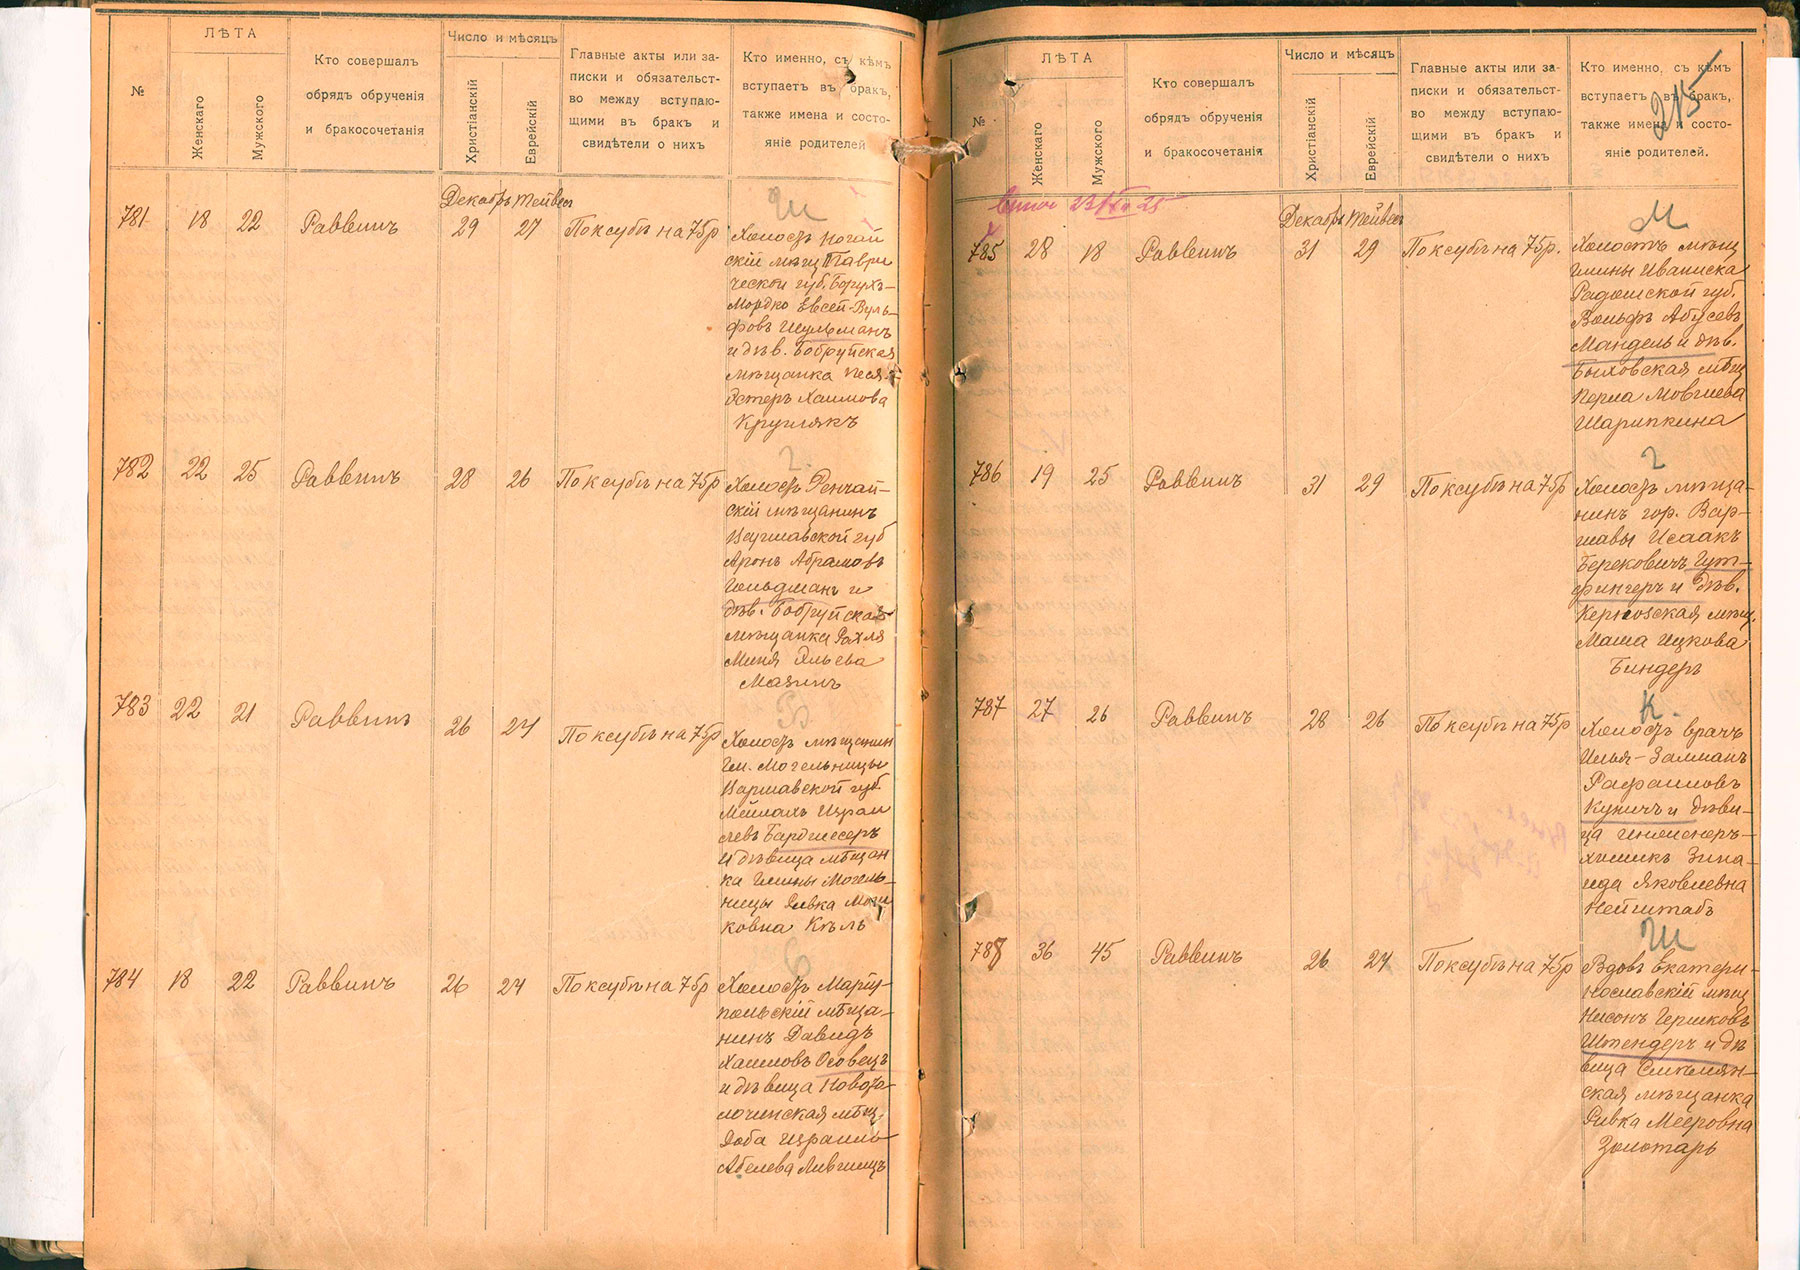 №
ЛѢТА
Женскаго
Мужского
Кто совершалъ
обрядъ обрученія
и бракосочетанія
Число и мѣсяцъ
Христіанскій
Еврейскій
Главные акты или за-
писки и обязательст-
во между вступаю-
щими въ бракъ и
свидѣтели о нихъ
Кто именно, съ кѣмъ
вступаетъ въ бракъ,
также имена и состо-
яніе родителей
Декабрь Тейвесъ
Ш
781 18 22 Раввинъ 29 27 По ксубѣ на 75р
Холостъ Ногай
скій мѣщ Таври
ческой губ. Борухъ-
Мордко Евсей-Вуль-
фовъ Шульманъ
и дѣв. Бобруйская
мѣщанка Песя-
Эстеръ Хаимова
Круглякъ
Г.
782 22 25 Раввинъ 28 26 По ксубѣ на 75р
Холостъ
скій мѣщанинъ
Варшавской губ
Аронъ Абрамовъ
Гольдманъ и
дѣв. Бобруйская
мѣщанка Рахля
Миня Эльева
Мазинъ
Б
783 22 21 Раввинъ 26 24 По ксубѣ на 75р
Холостъ мѣщанин
гм. Могельницы
Варшавской губ.
Мейлахъ Израи
левъ Бардмесеръ
и дѣвица мѣщан
ка гмины Могель-
ницы Ривка Мош
ковна Кѣль
784 18 22 Раввинъ 26 24 По ксубѣ на 75р
Холостъ Мариу-
польскій мѣща-
нинъ Давидъ
Хаимовъ Осовецъ
и дѣвица Новоза-
мѣщ.
Доба Израиль-
Абелева Лившицъ
215
№
ЛѢТА
Женскаго
Мужского
Кто совершалъ
обрядъ обрученія
и бракосочетанія
Число и мѣсяцъ
Христіанскій
Еврейскій
Главные акты или за-
писки и обязательст-
во между вступаю-
щими въ бракъ и
свидѣтели о нихъ
Кто именно, съ кѣмъ
вступаетъ въ бракъ,
также имена и состо-
яніе родителей.
Декабрь Тейвесъ
М
785 28 18 Раввинъ 31 29 По ксубѣ на 75р.
Холостъ мѣщ
гмины Иваниска
Радомской губ.
Вольфъ Абусевъ
Мандель и дѣв.
Быховская мѣщ
Перла Мовшева
Шарипкина
Г
786 19 25 Раввинъ 31 29 По ксубѣ на 75р
Холостъ мѣща-
нинъ гор. Вар-
шавы Исаакъ
Берековичъ Гут-
фингеръ и дѣв.
мѣщ.
Маша Ицкова
Биндеръ
К.
787 27 26 Раввинъ 28 26 По ксубѣ на 75р
Холостъ врачъ
Илья-Залманъ
Рафаиловъ
Куничъ и дѣви-
ца инженеръ-
химикъ Зина-
ида Яковлевна
Нейштабъ
Ш
788 36 45 Раввинъ 26 24 По ксубѣ на 75р
Вдовъ Екатери-
нославскій мѣщ
Нисонъ Гершковъ
Штендеръ и дѣ
вица Смилян-
ская мѣщанка
Ривка Мееровна
Золотарь